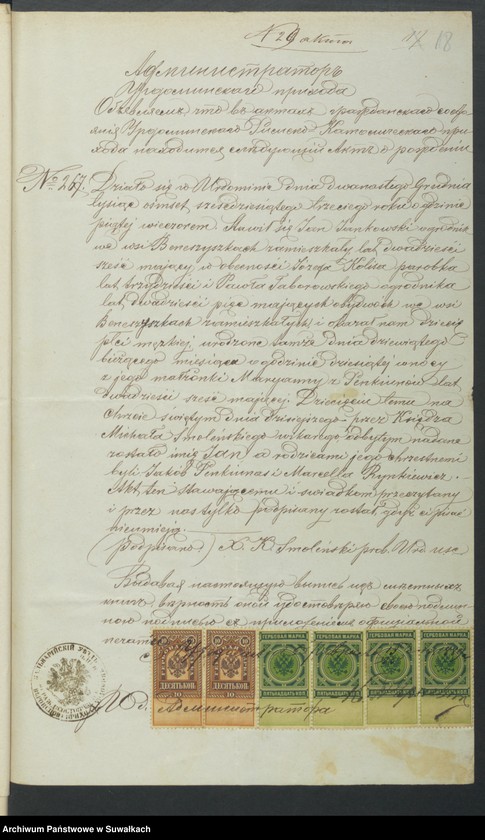 N 29 акта
18
Администраторъ
Урдоминскаго прихода
Объявляетъ что въ актахъ гражданскаго состоя
нія Урдоминскаго Римско Католическаго при
хода находится слѣдующій Актъ о рожденіи
№ 257. Działo się w Urdominie dnia dwunastego Grudnia
tysiąc ośmset sześćdziesiątego trzeciego roku o godzinie
piątej wieczorem. Stawił się Jan Jankowski ogrodnik
we wsi Beneszyszkach zamieszkały lat dwadzieścia
sześć mający, w obecności Józefa parobka
lat trzydzieści i Pawła Taborowskiego ogrodnika
lat dwadzieścia pięć mających obydwóch we wsi
Beneszyszkach zamieszkałych, i okazał nam dziecię
płci męzkiej urodzone tamże dnia dziewiątego
bieżącego miesiąca o godzinie dziesiątej w nocy
z jego małżonki Maryanny z Penkiunów lat
dwadzieścia sześć mającej. Dziecięciu temu na
Chrzcie świętym dnia dzisiejszego przez Księdza
Michała Smoleńskiego odbytym nadane
zostało imię Jan, a rodzicami jego chrzestnemi
byli Jakób Penkiunas i Marcella Rynkiewicz.
Akt ten stawającemu i świadkom przeczytany
i przez nas tylko podpisany został, gdyż ci pisać
nieumieją.
(podpisano) X. K. Smoleński prob. Urd. usc
Выдавая настоящую выпись изъ метическихъ
книгъ вѣрность оной удостовѣряю своею подпи
ною подписью съ приложеніемъ оффиціальной
печати
И. д. Администратора
ГЕРБОВАЯ МАРКА ГЕРБОВАЯ МАРКА ГЕРБОВАЯ МАРКА ГЕРБОВАЯ МАРКА
ДЕСЯТЬ КОП. ДЕСЯТЬ КОП. ПЯТЬДЕСЯТЪ КОП. ПЯТЬДЕСЯТЪ КОП. ПЯТЬДЕСЯТЪ КОП. ПЯТЬДЕСЯТЪ КОП.
10 10
Archiwum Państwowe w Suwałkach